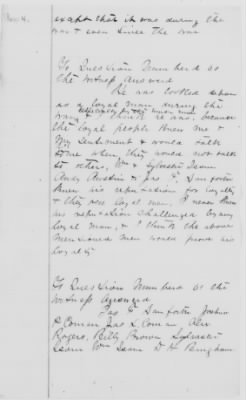 No. 4.
except that it was during the
war & ever since the war
To Question Numbered 50
the Witness Answered
He was looked upon
as a loyal man during the
war, & I think he was, because
the loyal people knew me &
My Sentiment & would talk
to me when they would not talk
to others, Wm & Sylvester Isom
Andy Austin & Jas F. Danforth
knew his reputation for loyalty
& they were loyal men, I never knew
his reputation challenged by any
loyal man, & I think the above
mentioned men would prove his
loyalty
To Question Numbered 51 the
Witness Answered
Jas F Danforth Joshua
P. Coman Jas L Coman Alex
Rogers, Billy Brown Sylvester
Isom Wm Isom D H Bingham